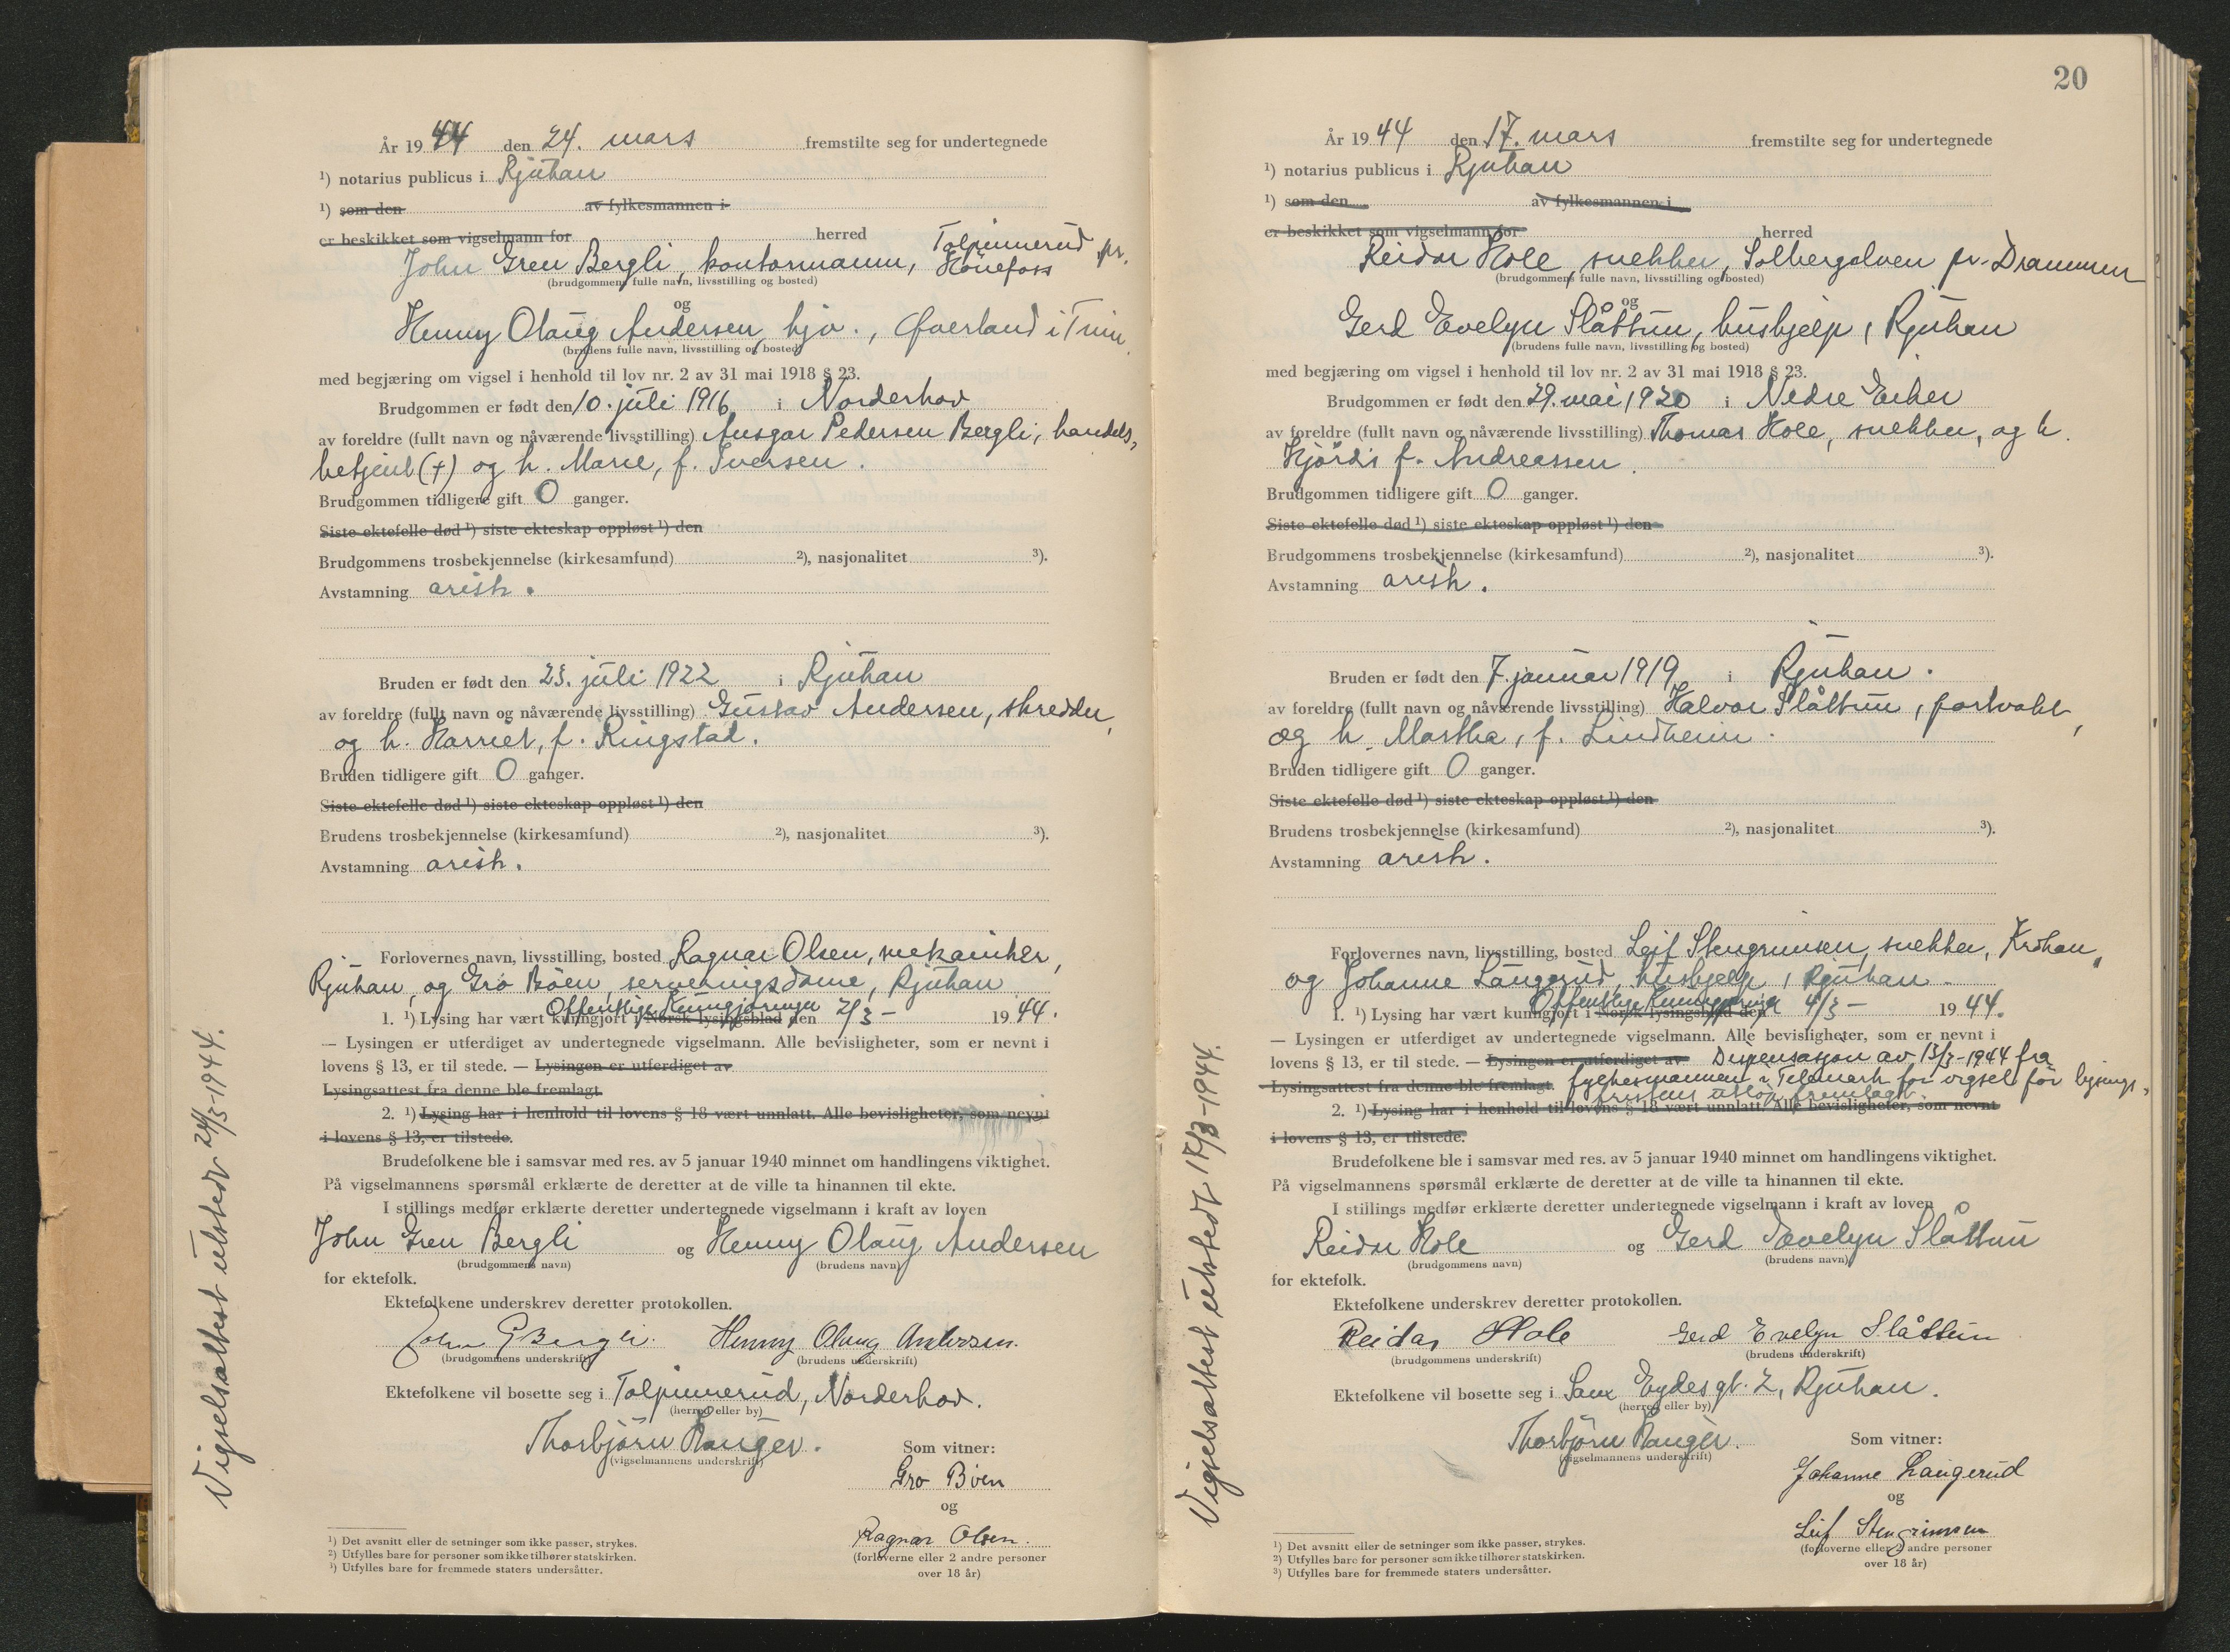 År 1944 den 24. mars fremstilte seg for undertegnede
1) notarius publicus i Rjukan
1) som den av fylkesmannen i
er beskikket som vigselmann for herred
John Gren Bergli, kontormann, Tolpinnerud pr. Hönefoss
(brudgommens fulle navn, livsstilling og bosted)
og
Henny Olaug Andersen, hjv., Øverland i Tinn.
(brudens fulle navn, livsstilling og bosted)
med begjæring om vigsel i henhold til lov nr. 2 av 31 mai 1918 § 23.
Brudgommen er født den 10. juli 1916 i Norderhov
av foreldre (fullt navn og nåværende livsstilling) Ansgar Pedersen Bergli, handels-
betjent (+) og h. Marie, f. Iversen.
Brudgommen tidligere gift 0 ganger.
Siste ektefelle død 1) siste ekteskap oppløst 1) den
Brudgommens trosbekjennelse (kirkesamfund) 2), nasjonalitet 3).
Avstamning arisk.
Bruden er født den 23. juli 1922 i Rjukan
av foreldre (fullt navn og nåværende livsstilling) Gustav Andersen, skredder,
og h. Harriet, f. Ringstad.
Bruden tidligere gift 0 ganger.
Siste ektefelle død 1) siste ekteskap oppløst 1) den
Brudens trosbekjennelse (kirkesamfund) 2), nasjonalitet 3).
Avstamning arisk.
Forlovernes navn, livsstilling, bosted Ragnar Olsen, mekaniker,
Rjukan, og Gro Böen, serveringsdame, Rjukan
1. 1) Lysing har vært kunngjort i Norsk lysingsblad Offentlige Kunngjøringer den 2/3 - 1944.
— Lysingen er utferdiget av undertegnede vigselmann. Alle bevisligheter, som er nevnt i
lovens § 13, er til stede. — Lysingen er utferdiget av
Lysingsattest fra denne ble fremlagt.
2. 1) Lysing har i henhold til lovens § 18 vært unnlatt. Alle bevisligheter, som nevnt
i lovens § 13, er tilstede.
Brudefolkene ble i samsvar med res. av 5 januar 1940 minnet om handlingens viktighet.
På vigselmannens spørsmål erklærte de deretter at de ville ta hinannen til ekte.
I stillings medfør erklærte deretter undertegnede vigselmann i kraft av loven
John Gren Bergli og Henny Olaug Andersen
(brudgommens navn) (brudens navn)
for ektefolk.
Ektefolkene underskrev deretter protokollen.
John G Bergli. Henny Olaug Andersen.
(brudgommens underskrift) (brudens underskrift)
Ektefolkene vil bosette seg i Tolpinnerud, Norderhov.
(herred eller by)
Thorbjörn Kauger.
(vigselmannens underskrift)
Som vitner:
Gro Böen
og
Ragnar Olsen.
(forloverne eller 2 andre personer
over 18 år)
1) Det avsnitt eller de setninger som ikke passer, strykes.
2) Utfylles bare for personer som ikke tilhører statskirken.
3) Utfylles bare for fremmede staters undersåtter.
Vigselsattest utstedt 24/3-1944.
20
År 1944 den 17. mars fremstilte seg for undertegnede
1) notarius publicus i Rjukan
1) som den av fylkesmannen i
er beskikket som vigselmann for herred
Reidar Hole, snekker, Solbergelven pr. Drammen
(brudgommens fulle navn, livsstilling og bosted)
og
Gerd Evelyn Slåttun, hushjelp, Rjukan
(brudens fulle navn, livsstilling og bosted)
med begjæring om vigsel i henhold til lov nr. 2 av 31 mai 1918 § 23.
Brudgommen er født den 29. mai 1920 i Nedre Eiker
av foreldre (fullt navn og nåværende livsstilling) Thomas Hole, snekker, og h.
Hjördis f. Andreassen.
Brudgommen tidligere gift 0 ganger.
Siste ektefelle død 1) siste ekteskap oppløst 1) den
Brudgommens trosbekjennelse (kirkesamfund) 2), nasjonalitet 3).
Avstamning arisk.
Bruden er født den 7. januar 1919 i Rjukan.
av foreldre (fullt navn og nåværende livsstilling) Halvor Slåttun, portvakt,
og h. Martha, f. Lindheim.
Bruden tidligere gift 0 ganger.
Siste ektefelle død 1) siste ekteskap oppløst 1) den
Brudens trosbekjennelse (kirkesamfund) 2), nasjonalitet 3).
Avstamning arisk.
Forlovernes navn, livsstilling, bosted Leif Stengrimsen, snekker, Krokan,
og Johanne Langerud, hushjelp, Rjukan.
1. 1) Lysing har vært kunngjort i Norsk lysingsblad den Offentlige Kunngjøringer 4/3 - 1944.
— Lysingen er utferdiget av undertegnede vigselmann. Alle bevisligheter, som er nevnt i
lovens § 13, er til stede. — Lysingen er utferdiget av Dispensasjon av 13/3-1944 fra
Lysingsattest fra denne ble fremlagt. fylkesmannen i Telemark for vigsel för lysings-
fristens utlöp fremlagt.
2. 1) Lysing har i henhold til lovens § 18 vært unnlatt. Alle bevisligheter, som nevnt
i lovens § 13, er tilstede.
Brudefolkene ble i samsvar med res. av 5 januar 1940 minnet om handlingens viktighet.
På vigselmannens spørsmål erklærte de deretter at de ville ta hinannen til ekte.
I stillings medfør erklærte deretter undertegnede vigselmann i kraft av loven
Reidar Hole og Gerd Evelyn Slåttun
(brudgommens navn) (brudens navn)
for ektefolk.
Ektefolkene underskrev deretter protokollen.
Reidar Hole Gerd Evelyn Slåttun
(brudgommens underskrift) (brudens underskrift)
Ektefolkene vil bosette seg i Sam Eydesgt. 2, Rjukan.
(herred eller by)
Thorbjörn Kauger.
(vigselmannens underskrift)
Som vitner:
Johanne Langerud
og
Leif Stengrimsen
(forloverne eller 2 andre personer
over 18 år)
1) Det avsnitt eller de setninger som ikke passer, strykes.
2) Utfylles bare for personer som ikke tilhører statskirken.
3) Utfylles bare for fremmede staters undersåtter.
Vigselsattest utstedt 17/3-1944.